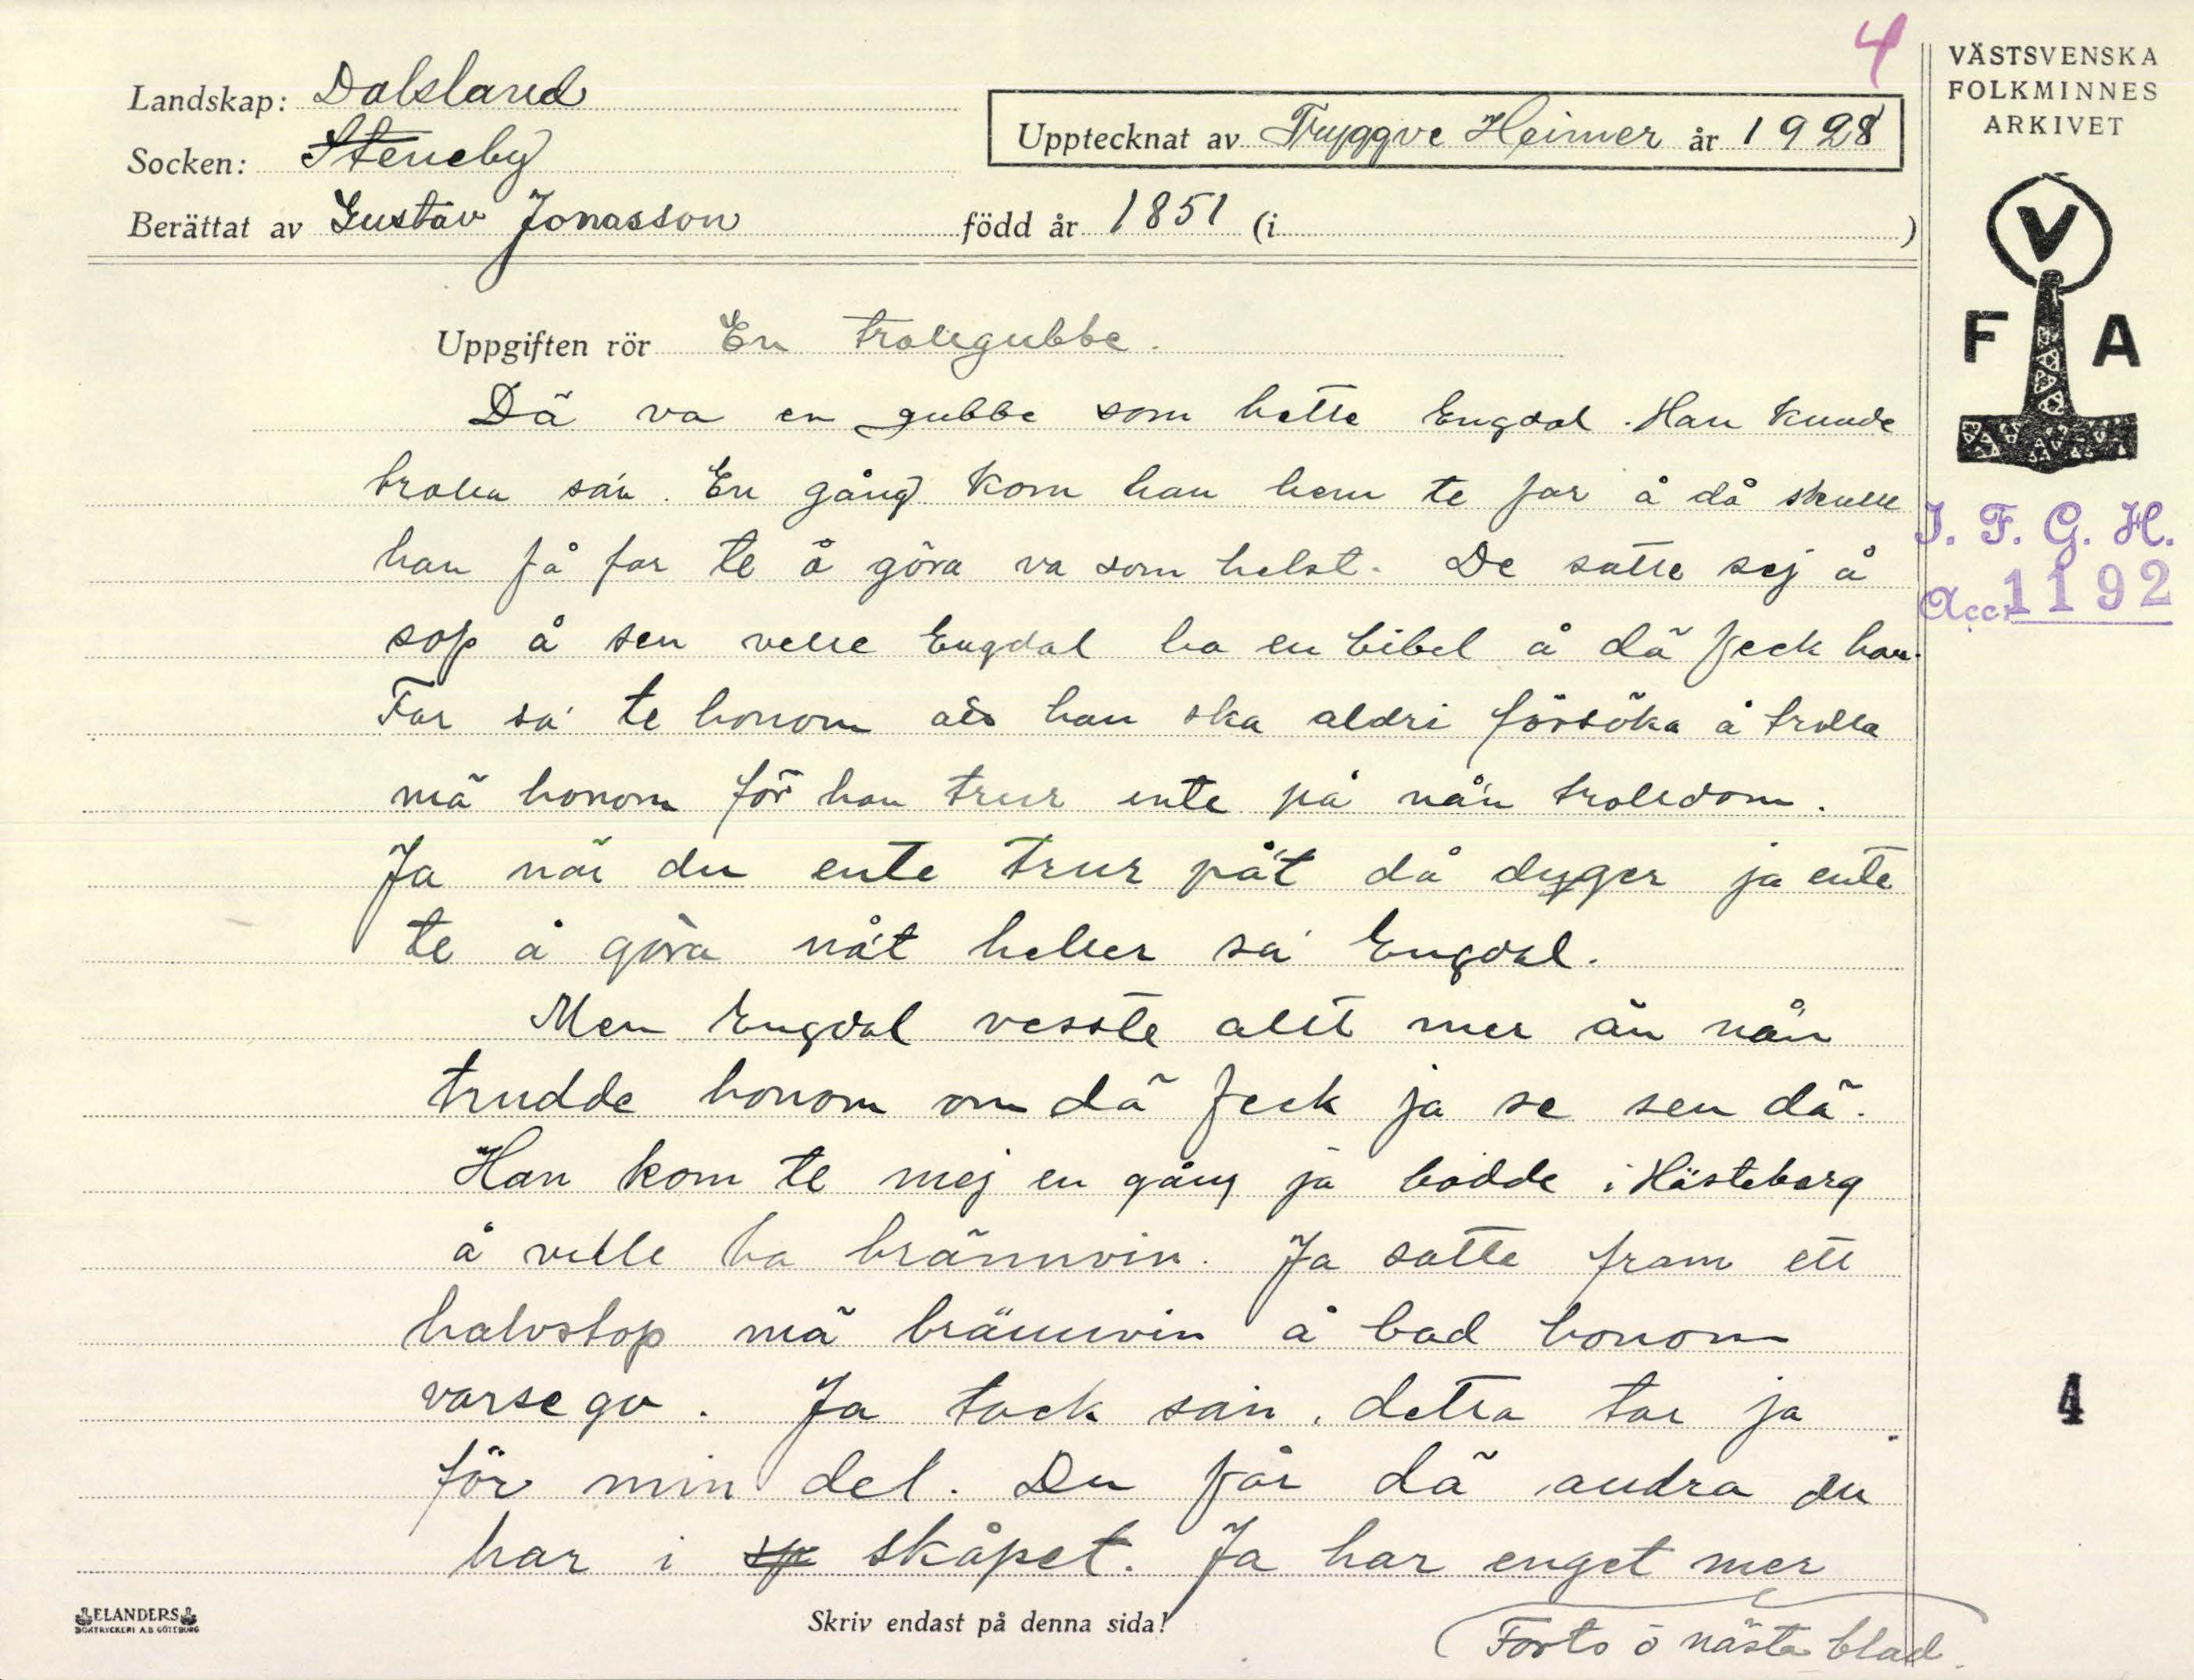 4
VÄSTSVENSKA
FOLKMINNES
ARKIVET
Landskap: Dalsland
Socken: Steneby
Upptecknat av Tryggve Heimer år 1928
Berättat av Gustav Jonasson född år 1851 (i )
V
F A
I. F. G. H.
Acc. 1192
Uppgiften rör En trollgubbe.
Dä va en gubbe som hette Engdal. Han kunde
trolla sa'n. En gång kom han hem te far å då skulle
han få far te å göra va som helst. De satte sej å
sop å sen velle Engdal ha en bibel å dä feck han.
Far sa' te honom att han ska aldri försöka å trolla
mä honom för han trur inte på nå'n trolldom.
Ja när du ente trur på't då dyger ja ente
te å göra nå't heller sa' Engdal.
Men Engdal vesste allt mer än nån
trudde honom om dä feck ja se sen dä.
Han kom te mej en gång ja bodde i Hästeborg
å velle ha brännvin. Ja satte fram ett
halvstop mä brännvin å bad honom
varsego. Ja tack san, detta tar ja
för min del. Du får dä andra du
har i skåpet. Ja har enget mer
4
ELANDERS
BOKTRYCKERI A.B. GÖTEBORG
Skriv endast på denna sida!
Forts å nästa blad.